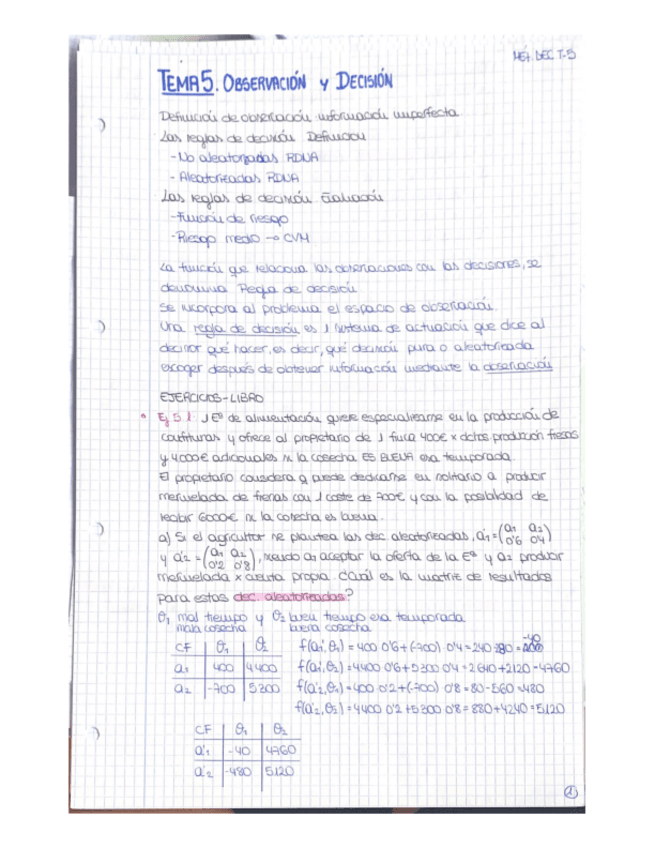 MÉT. DEC. T-5
TEMA 5. OBSERVACIÓN y DECISIÓN
Definición de observación información imperfecta
Las reglas de decisión Definición
- No aleatorizadas RDNA
- Aleatorizadas RDNA
Las reglas de decisión Evaluación
- Función de riesgo
- Riesgo medio → CVM
La función que relaciona las observaciones con las decisiones, se
denomina Regla de decisión
Se incorpora al problema el espacio de observación.
Una regla de decisión es 1 sistema de actuación que dice al
decisor qué hacer, es decir, qué decisión pura o aleatorizada
escoger después de obtener información mediante la observación
EJERCICIOS-LIBRO
• Ej 5.1. 1 Eª de alimentación quiere especializarse en la producción de
confituras y ofrece al propietario de 1 finca 400€ x dichos producción fresas
y 4000€ adicionales si la cosecha ES BUENA esa temporada.
El propietario considera q puede dedicarse en solitario a producir
mermelada de fresas con 1 coste de 700€ y con la posibilidad de
recibir 6000€ si la cosecha es buena.
a) Si el agricultor se plantea las dec. aleatorizadas, a'1 = (a1 a2
0'6 0'4)
y a'2 = (a1 a2
0'2 0'8), siendo a1 aceptar la oferta de la Eª y a2 producir
mermelada x cuenta propia. Cuál es la matriz de resultados
para estas dec. aleatorizadas?
θ1 mal tiempo y θ2 buen tiempo esa temporada
mala cosecha buena cosecha
CF θ1 θ2
a1 400 4400
a2 -700 5300
f(a'1, θ1) = 400 0'6 + (-700) · 0'4 = 240 - 280 = -40
f(a'1, θ2) = 4400 0'6 + 5300 0'4 = 2640 + 2120 = 4760
f(a'2, θ1) = 400 0'2 + (-700) 0'8 = 80 - 560 = -480
f(a'2, θ2) = 4400 0'2 + 5300 0'8 = 880 + 4240 = 5120
CF θ1 θ2
a'1 -40 4760
a'2 -480 5120
1